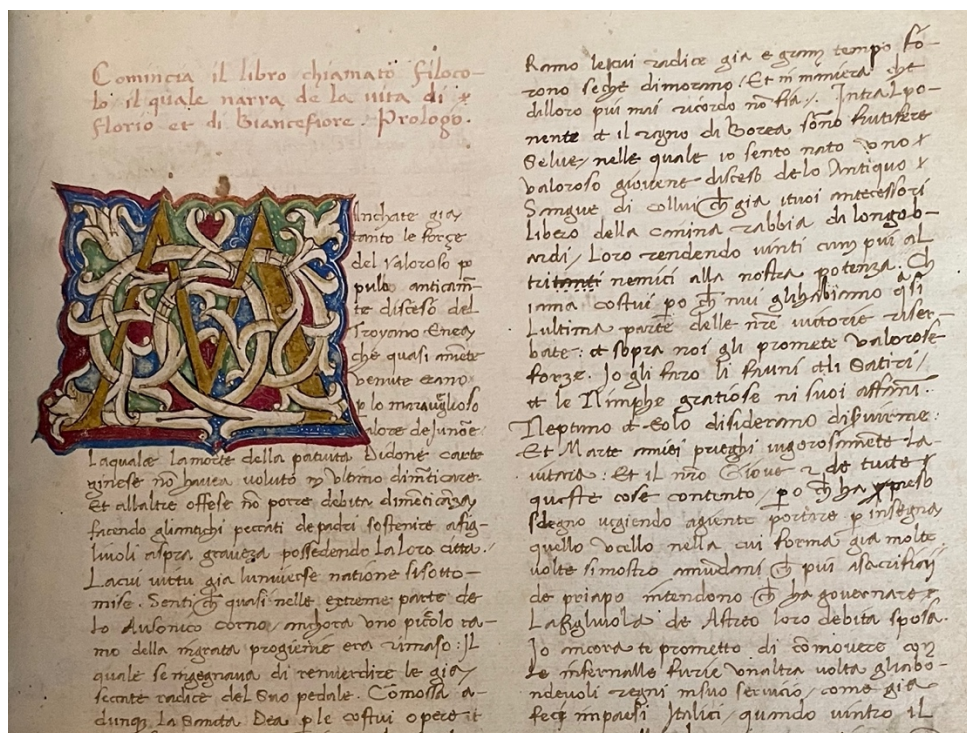 Comincia il libro chiamato Filoco-
lo il quale narra de la vita di
Florio et di Biancefiore. Prologo.
Manchate gia
tanto le forze
del valoroso p
pulo anticam̄
te disceso del
Troyano Enea
che quasi amēte
venute erano
p lo maraviglioso
valore de Junōe:
Laquale la morte della patuita Didone carta
ginese nō haveva voluto ī ultimo dimēticare.
Et allaltre offese nō porre debita dimēticāza
facendo gliantichi peccati de padri sostenire afig-
liuoli aspra graveza possedendo la loro citta.
Lacui virtu gia luniverse natione sisotto-
mise. Senti ch quasi nelle extreme parte de
lo Ausonico corno, anchora uno picolo ra-
mo della ingrata progienie era rimaso: Il
quale se ingegnava di renverdire le gia
seccate radice del Suo pedale. Cōmossa a-
dunq La Sancta Dea p le costui opere
Ramo lecui radice gia e gram tempo fo-
rono seche dimorano. Et in maniera che
dilloro piu mai ricordo nō fia. Intra Lpo-
nente et il regno di Borea sono frutifere
Selve, nelle quale io sento nato uno
valoroso giovene disceso delo Antiquo
Sangue di collui ch gia ituoi antecessori
libero della canina rabbia di longob-
ardi, Loro rendendo vinti cum piu al
tri nemici alla nostra potenza. Ch
iama costui po ch nui glihabiamo q̄si
Lultima parte delle nr̄e victorie riser-
bate: et sopra noi gli promete valorose
forze. Io gli faro li fauni et li Satiri,
et le Nimphe gratiose ni suoi affāni.
Neptuno et Eolo disiderano diservirme:
Et Marte amiei prieghi vigorosamēte la-
vitara. Et il nr̄o Giove e de tutte
queste cose contento, po ch ha preso
sdegno vegiendo agiente portare p insegna
quello vcello nella cui forma gia molte
volte simostro amūdani ch piu asacrificij
de priapo intendono ch ha governare
La figliuola de Astreo loro debita sposa.
Io ancora te prometto di cōmovere con
le infernalle furie vnaltra volta gliabo-
ndevoli regni insuo servicio, come gia
feci impaesi Italici, quando vintro il